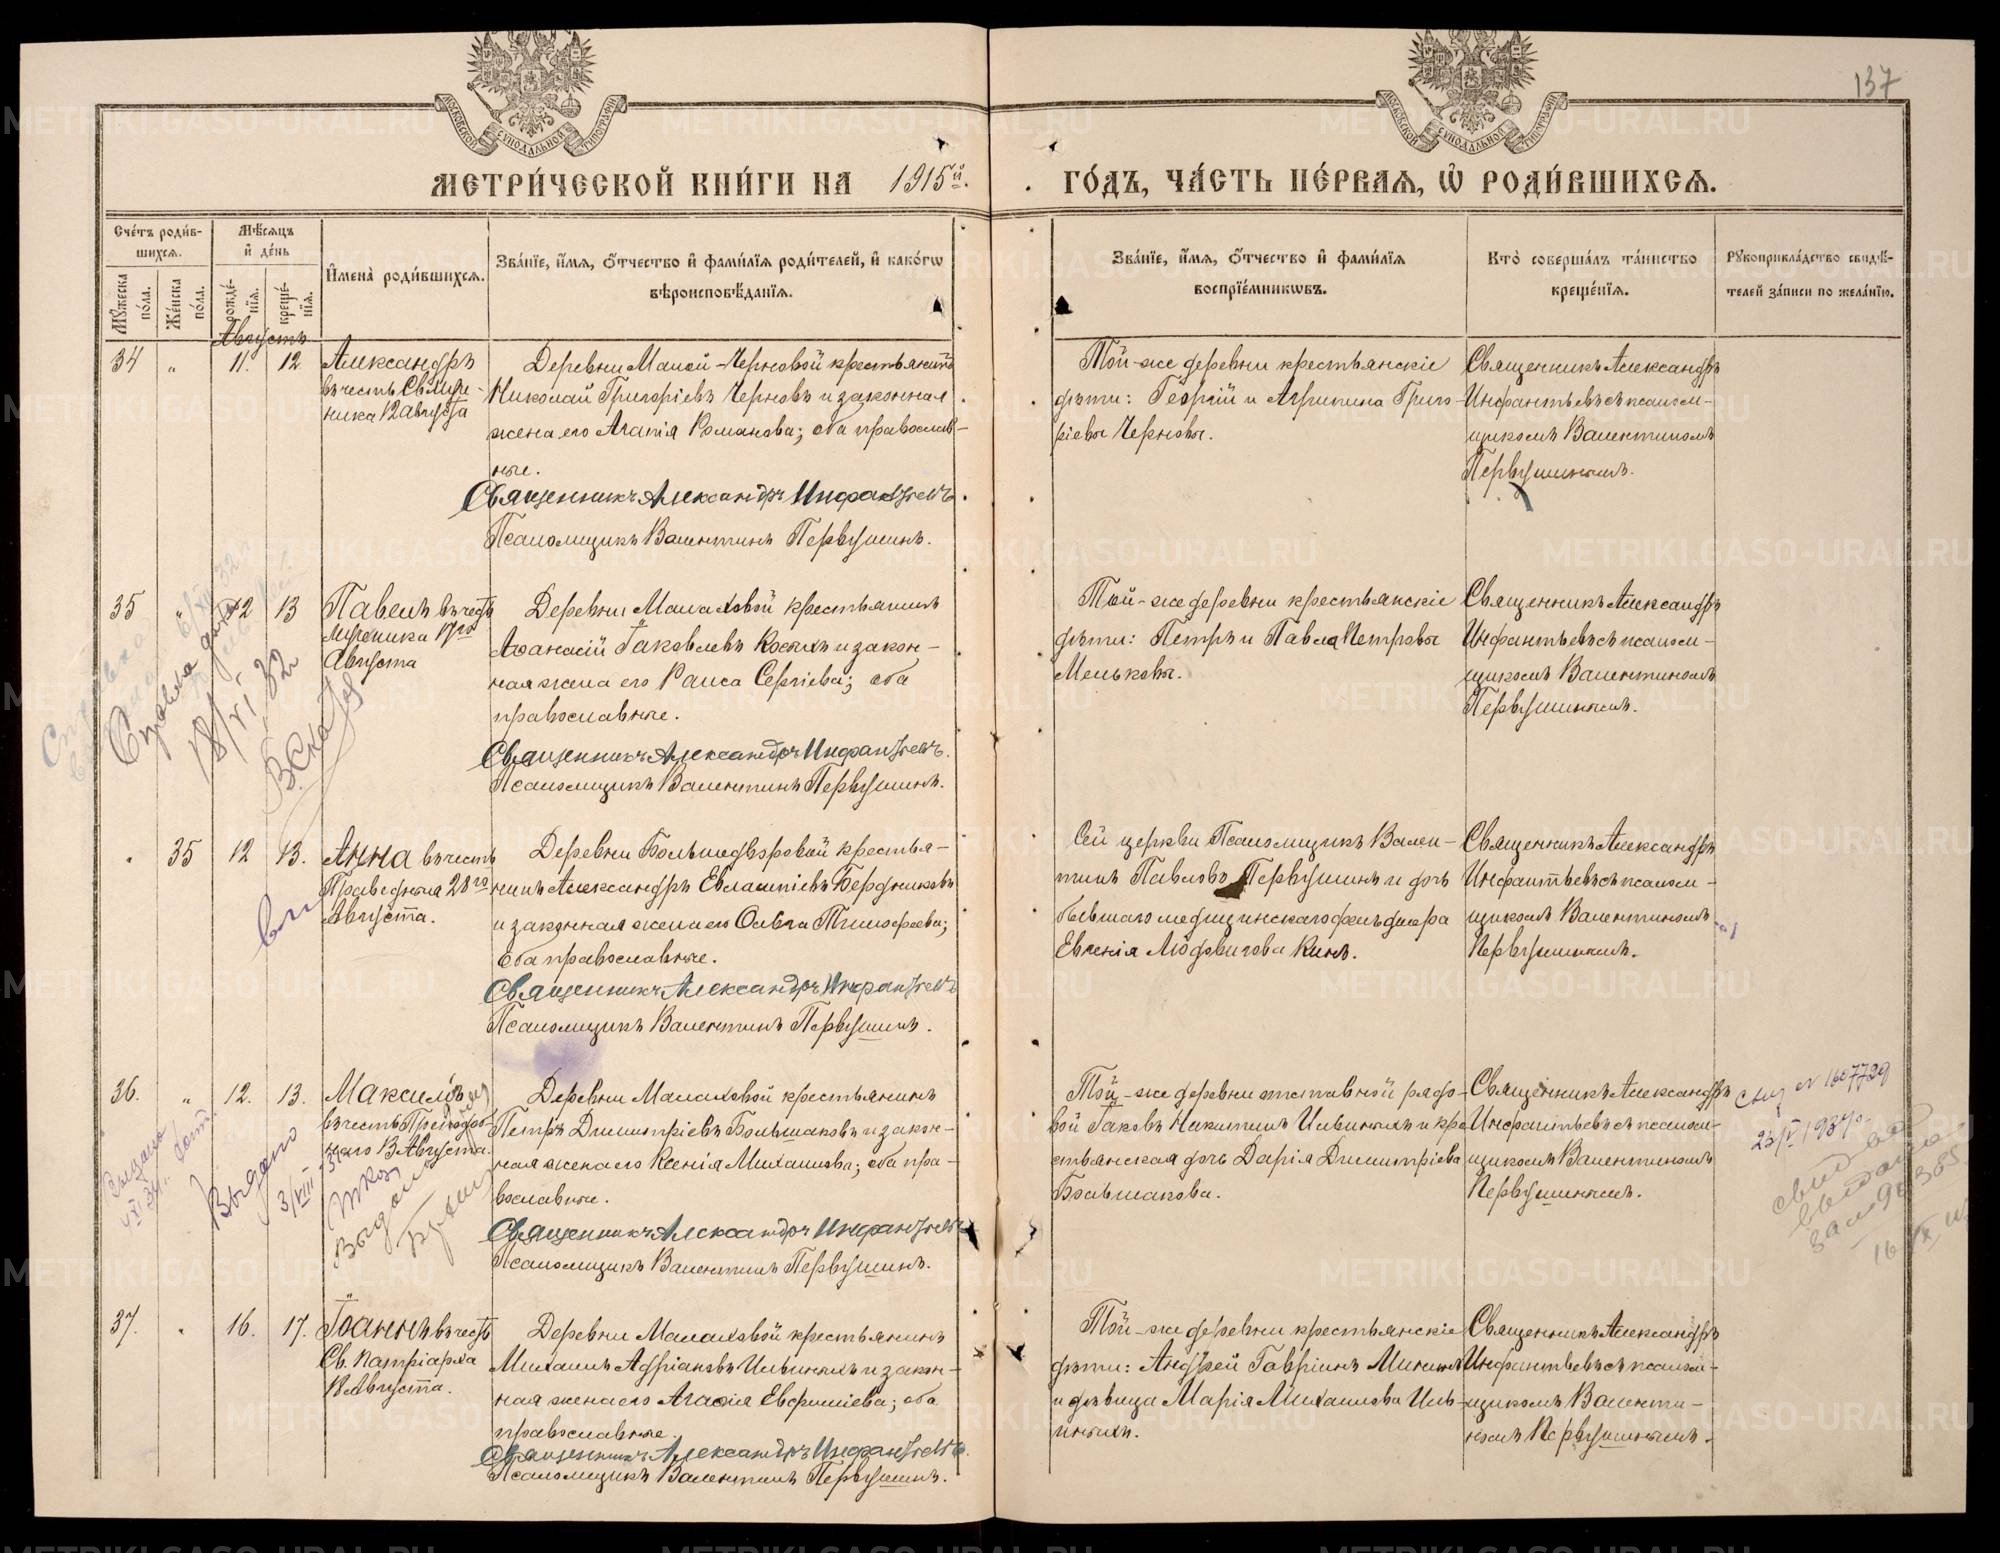 137
МОСКОВСКОЙ СѴНОДАЛЬНОЙ ТИПОГРАФІИ
МОСКОВСКОЙ СѴНОДАЛЬНОЙ ТИПОГРАФІИ
МЕТРИ́ЧЕСКОЙ КНИ́ГИ НА 1915й.
ГО́ДЪ, ЧА́СТЬ ПЕ́РВАЯ, Ѽ РОДИ́ВШИХСЯ.
Сче́тъ роди́в-
шихся.
Мѣ́сяцъ
и҆ де́нь
Мꙋ́жеска
по́ла.
Же́нска
по́ла.
рожде́-
нїя.
креще́-
нїя.
И҆мена̀ роди́вшихся.
Зва́нїе, и҆́мя, ѻ҆́тчество и҆ фами́лїя роди́телей, и҆ како́гѡ
вѣроисповѣ́данїя.
Зва́нїе, и҆́мя, ѻ҆́тчество и҆ фами́лїя
воспрїе́мникѡвъ.
Кто̀ соверша́лъ та́инство
креще́нїя.
Рꙋкоприкла́дство свидѣ́-
телей за́писи по жела́нїю.
Августъ
34 „ 11. 12
Александръ
въ честь Св. Муче-
ника 12 августа
Деревни Малой-Черновой крестьянинъ
Николай Григоріевъ Черновъ и законная
жена его Агапія Романова; оба православ-
ные.
Священникъ Александръ Инфантьевъ
Псаломщикъ Валентинъ Первушинъ.
Той-же деревни крестьянскіе
дѣти: Георгій и Агрипина Григо-
ріевы Черновы.
Священникъ Александръ
Инфантьевъ съ псалом-
щикомъ Валентиномъ
Первушинымъ.
35 „ 12 13
Павелъ въ честь
мученика 17го
Августа
Деревни Малаховой крестьянинъ
Аѳанасій Іаковлевъ Косыхъ и закон-
ная жена его Раиса Сергіева; оба
православные.
Священникъ Александръ Инфантьевъ.
Псаломщикъ Валентинъ Первушинъ.
Той-же деревни крестьянскіе
дѣти: Петръ и Павла Петровы
Меньковы.
Священникъ Александръ
Инфантьевъ съ псалом-
щикомъ Валентиномъ
Первушинымъ.
Справка дана
18/VI 32 г
„ 35 12 13.
Анна въ честь
Праведныя 28го
Августа.
Деревни Большедворовой крестья-
нинъ Александръ Евлампіевъ Бердниковъ
и законная жена его Ольга Тимофеева;
оба православные.
Священникъ Александръ Инфантьевъ
Псаломщикъ Валентинъ Первушинъ.
Сей церкви Псаломщикъ Вален-
тинъ Павловъ Первушинъ и дочь
бывшаго медицинскаго фельдшера
Евгенія Людовигова Кинъ.
Священникъ Александръ
Инфантьевъ съ псалом-
щикомъ Валентиномъ
Первушинымъ.
36. „ 12. 13.
Максимъ
въ честь Преподоб-
наго 13 Августа.
Деревни Малаховой крестьянинъ
Петръ Димитріевъ Большаковъ и закон-
ная жена его Ксенія Михаилова; оба пра-
вославные.
Священникъ Александръ Инфантьевъ
Псаломщикъ Валентинъ Первушинъ.
Той-же деревни отставной рядо-
вой Іаковъ Никитинъ Ильиныхъ и кре-
стьянская дочь Дарія Димитріева
Большакова.
Священникъ Александръ
Инфантьевъ съ псалом-
щикомъ Валентиномъ
Первушинымъ.
Выдано
3/VIII
Выдано
37. „ 16. 17.
Іоаннъ въ честь
Св. Патріарха
18 Августа.
Деревни Малаховой крестьянинъ
Михаилъ Адріановъ Ильиныхъ и закон-
ная жена его Агафія Евфиміева; оба
православные.
Священникъ Александръ Инфантьевъ.
Псаломщикъ Валентинъ Первушинъ.
Той-же деревни крестьянскіе
дѣти: Андрей Гавріилъ Мининъ
и дѣвица Марія Михаилова Иль-
иныхъ.
Священникъ Александръ
Инфантьевъ съ псалом-
щикомъ Валенти-
номъ Первушинымъ.
METRIKI.GASO-URAL.RU